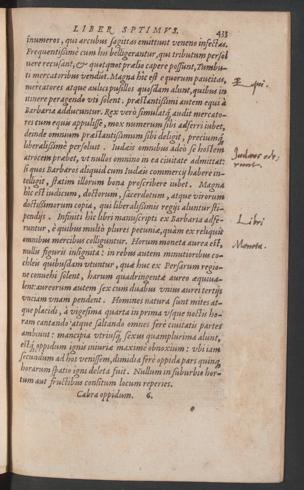 LIBER SPTIMVS. 433
inumeros, qui arcubus sagittas emittunt veneno infectas.
Frequentissimè cum his belligerantur, qui tributum persol
uere recusāt, & quotquot prælio capere possunt, Tumbu-
ti mercatoribus vendūt. Magna hic est equorum paucitas,
mercatores atque aulici pusillos quosdam alunt, quibus in
itinere peragendo vti solent. præstantissimi autem equi à
Barbaria adducuntur. Rex verò simulatq́; audit mercato-
res cum equis appulisse, mox numerum sibi adferri iubet,
deinde omnium præstantissimum sibi deligit, preciumq́;
liberalissimè persoluit. Iudæis omnibus adeò se hostem
atrocem præbet, vt nullos omnino in ea ciuitate admittat:
si quos Barbaros aliquid cum Iudæis commercij habere in-
telligit, statim illorum bona proscribere iubet. Magna
hic est iudicum, doctorum, sacerdotum, atque virorum
doctissimorum copia, qui liberalissimè regis aluntur sti-
pendijs. Infiniti hic libri manuscripti ex Barbaria adfe-
runtur, è quibus multò pluris pecunia, quàm ex reliquis
omnibus mercibus colliguntur. Horum moneta aurea est,
nullis figuris insignita: in rebus autem minutioribus co-
chleis quibusdam vtuntur, quæ huc ex Persarum regio-
ne conuehi solent, harum quadringentæ aureo æquiua-
lent: aureorum autem sex cum duabus vnius aurei tertijs
vnciam vnam pendent. Homines natura sunt mites at-
que placidi, à vigesima quarta in prima vsque noctis ho-
ram cantando atque saltando omnes ferè ciuitatis partes
ambiunt: mancipia vtriusq́; sexus quamplurima alunt,
estq́; oppidum ignis iniuriæ maximè obnoxium: vbi iam
secundùm ad hos venissem, dimidia ferè oppidi pars quinq́;
horarum spatio igni deleta fuit. Nullum in suburbio hor-
tum aut fructibus consitum locum reperies.
Cabra oppidum. 6.
Equi.
Iudæos
Libri
Moneta.